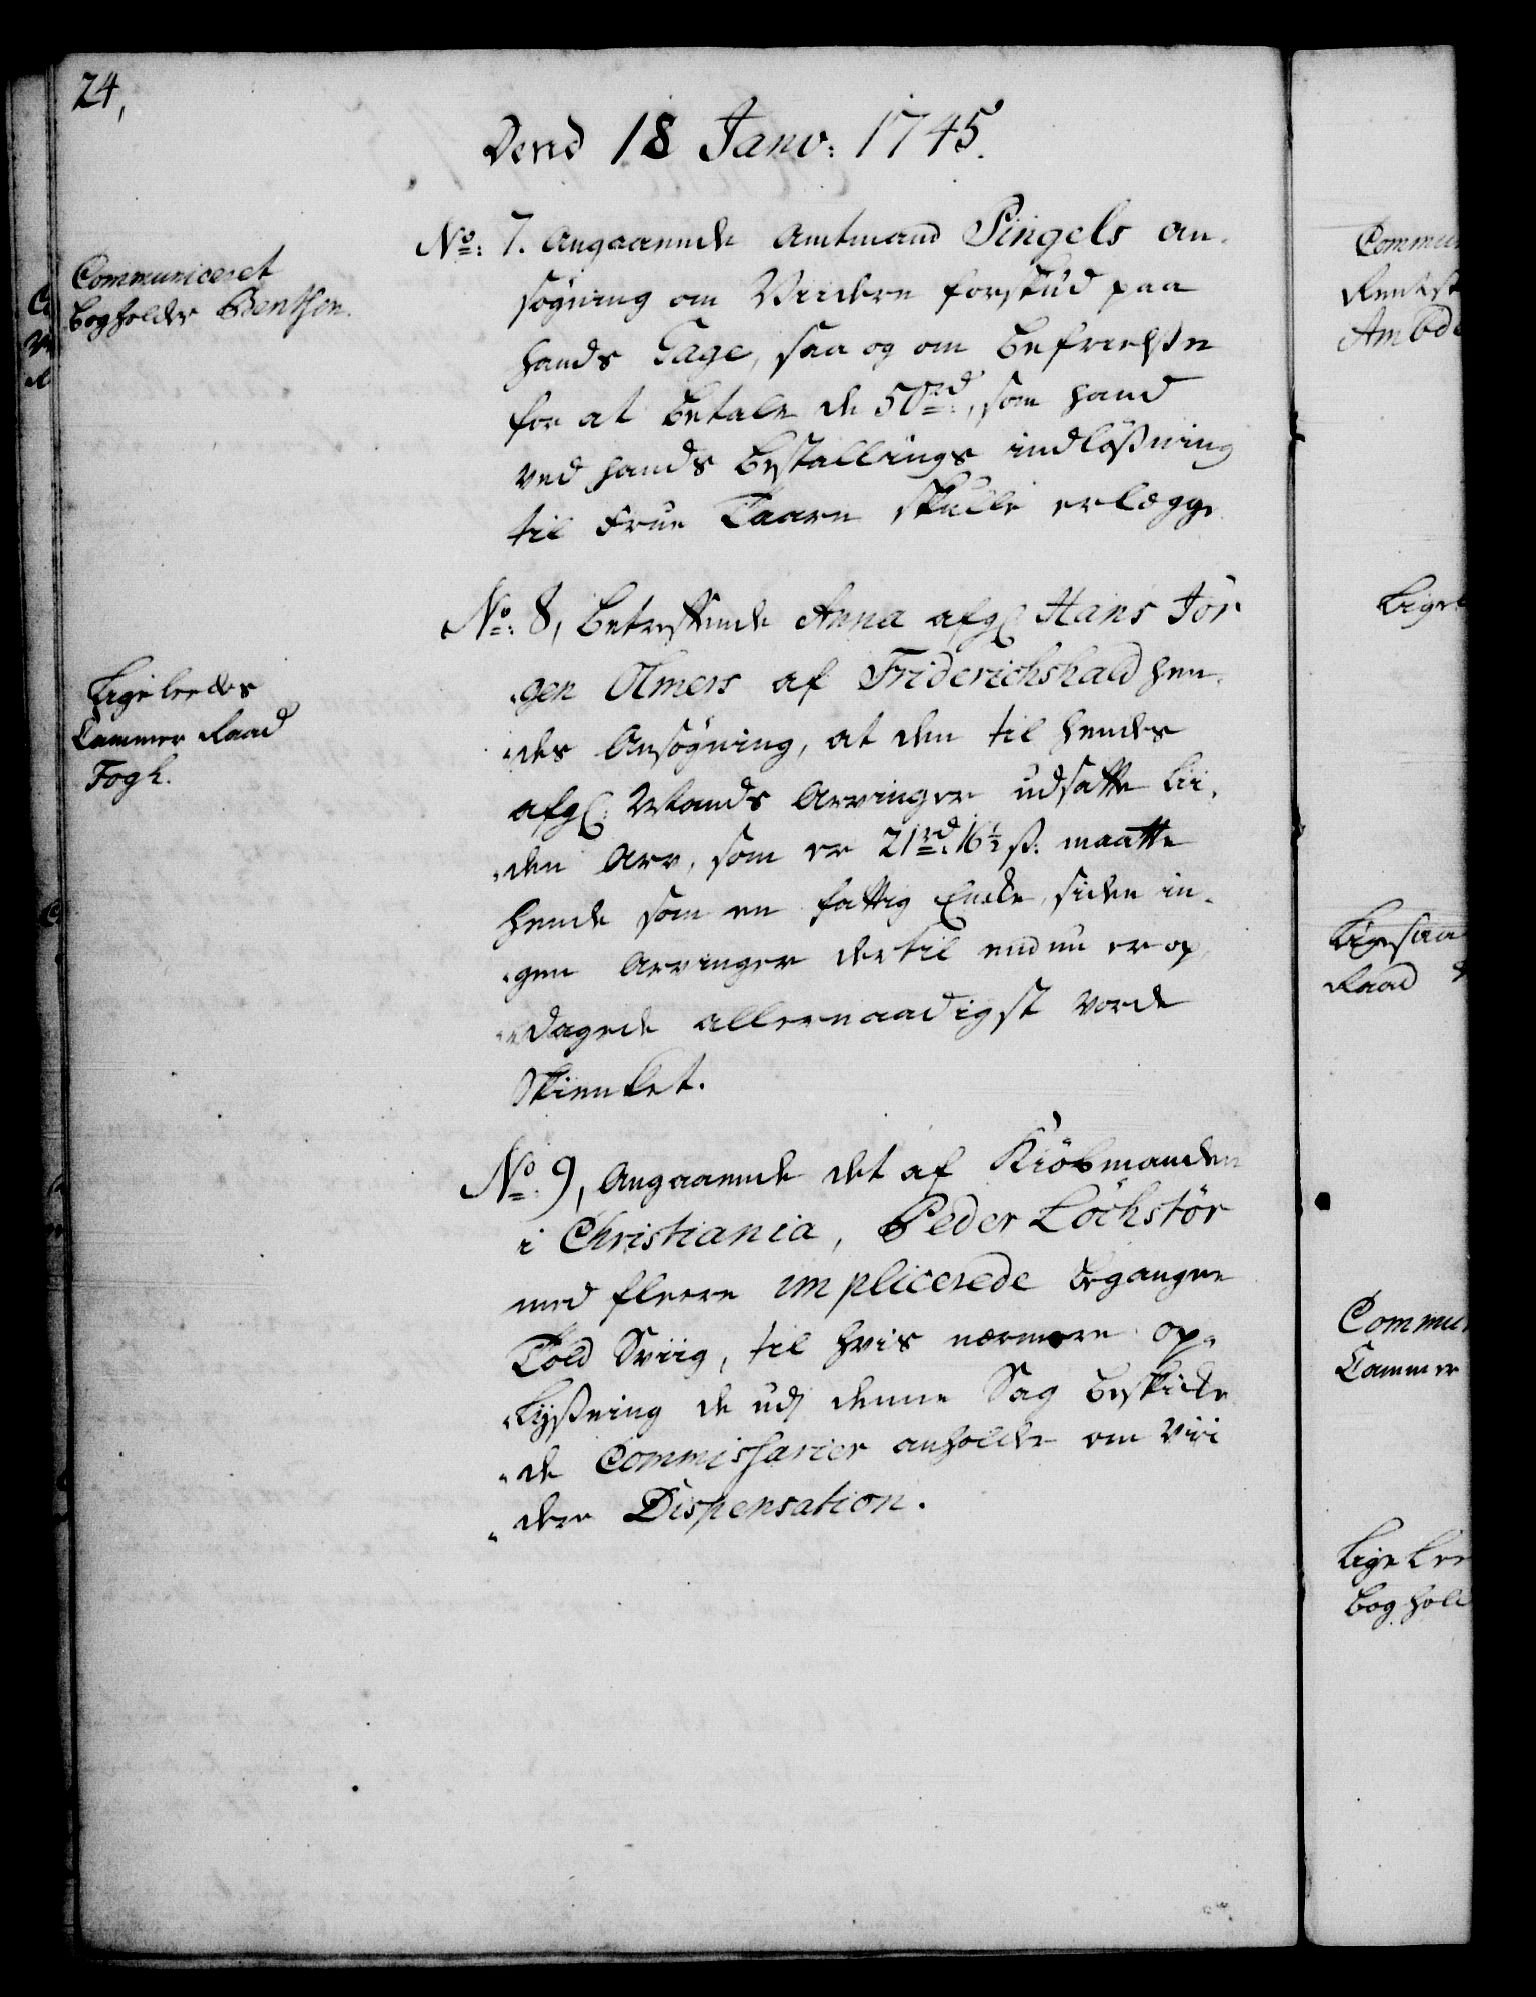 24,
Dend 18 Janv: 1745.
Communiceret
Bogholder Benthen.
No: 7. Angaaende Amtmand Pingels an-
søgning om Viidere forskud paa
hands Gage, saa og om befrielse
for at betale de 50rd:, som hand
ved hands Bestallings indløsning
til Frue Taarn skulle erlægge
Ligeleedes
Cammer Raad
Fogh.
No: 8, Betreffende Anna afgl Hans Jör
gen Olmers af Friderichshald hen-
des Ansøgning, at den til hendes
afgl: Mands Arvinger udsatte lii-
den Arv, som er 21rd: 16½ ß. maatte
hende som en fattig Encke, siden in-
gen Arvinger dertil endnu er op-
dagede allernaadigst vorde
Skienket.
No: 9, Angaaende det af Kiöbmanden
i Christiania, Peder Löchstör
med fleere implicerede begangne
Told Sviig, til hvis nærmere op-
lysning de udj denne Sag beskicke
de Commissarier anholder om vii
dere Dispensation.
Commun
Rentesk
Ambde
Lige
Ligesaa
Raad
Commun
Cammer
Lige Lee
Boghold